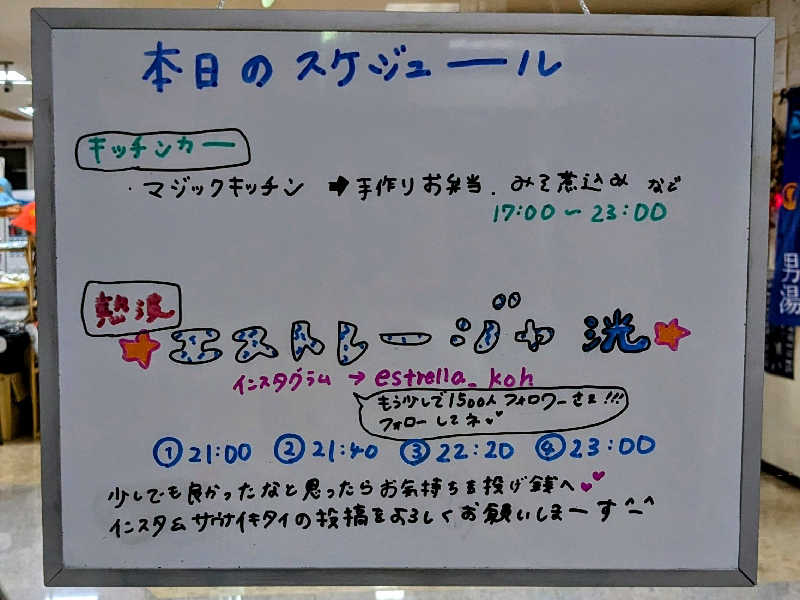 本日のスケジュール
キッチンカー
・マジックキッチン ➡ 手作りお弁当、みそ煮込み など
17:00〜23:00
熱波
エストレージャ 洸
インスタグラム → estrella_koh
もう少しで1500人フォロワーさま!!!
フォローしてネ
①21:00 ②21:40 ③22:20 ④23:00
少しでも良かったなと思ったらお気持ちを投げ銭へ
インスタ&サウナイキタイの投稿をよろしくお願いしまーす^_^
男湯